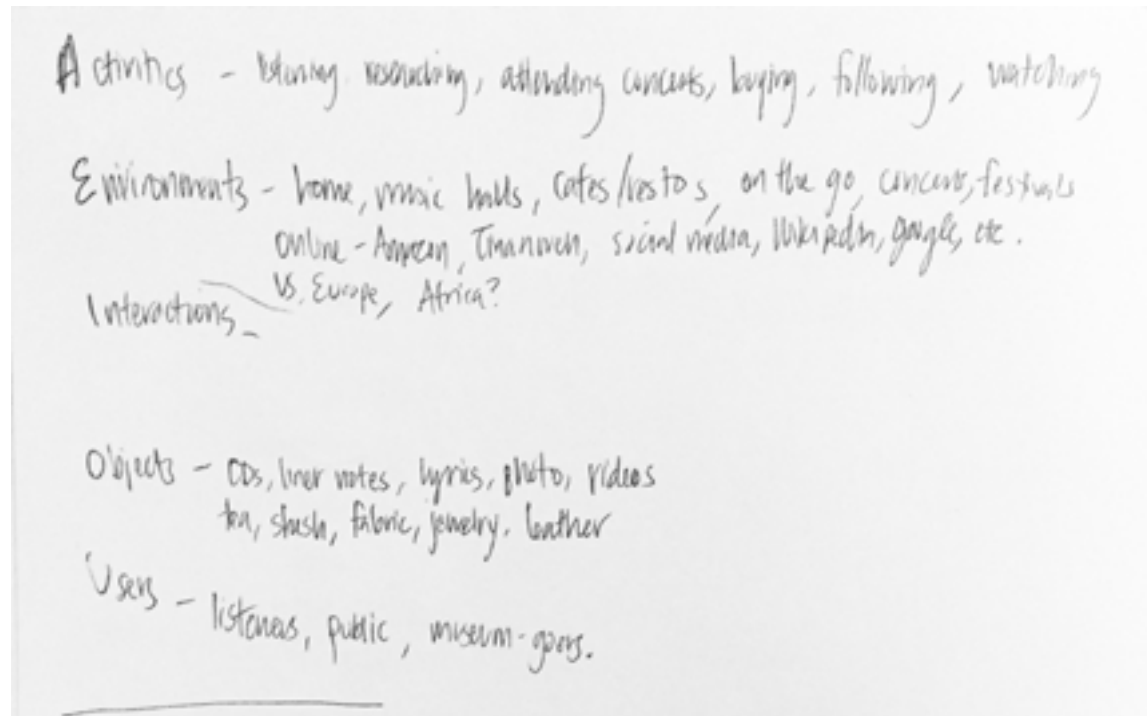 Activities - listening, researching, attending concerts, buying, following, watching
Environments - home, music halls, cafes/restos, on the go, concerts, festivals
online - Amazon, social media, Wikipedia, google, etc.
VS. Europe, Africa?
Interactions -
Objects - CDs, liner notes, lyrics, photo, videos
tea, fabric, jewelry, leather
Users - listeners, public, museum-goers.